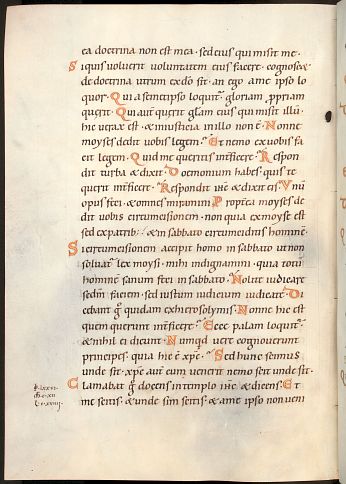 ea doctrina non est mea · sed eius qui misit me ·
Siquis voluerit voluntatem eius facere · cognoscet
de doctrina utrum ex dō sit · an ego a me ipso lo
quor · Qui a semetipso loquit᷑ · gloriam ppriam
querit · Qui aut̄ querit gl̄am eius qui misit illū
hic verax est · & iniusticia in illo non ē · Nonne
moyses dedit vobis legem · Et nemo ex vobis fa
cit legem · Quid me queritis int̄ficere · Respon
dit turba & dixit · Demonium habes · quis te
querit int̄ficere · Respondit ihc̄ & dixit eis · Vnū
opus feci · & omnes miramini · Propt̄ea moyses de
dit vobis circumcisionem · non quia ex moyse est
sed ex patrib; · & in sabbato circumciditis hominē ·
Si circumcisionem accipit homo in sabbato ut non
solvat᷑ lex moysi · mihi indignamini · quia totū
hominē sanum feci in sabbato · Nolite iudicare
sedm̄ faciem · sed iustum iudicium iudicate · Di
cebant g̊ quidam ex hierosolymis · Nonne hic est
quem querunt int̄ficere · Ecce palam loquit᷑ ·
& nihil ei dicunt · Numqd̄ vere cognoverunt
principes · quia hic ē xp̄c · Sed hunc scimus
unde sit · xp̄c aut̄ cum venerit nemo scit unde sit ·
Clamabat g̊ docens in templo ihc̄ & dicens · Et
me scitis · & unde sim scitis · & a me ipso non veni